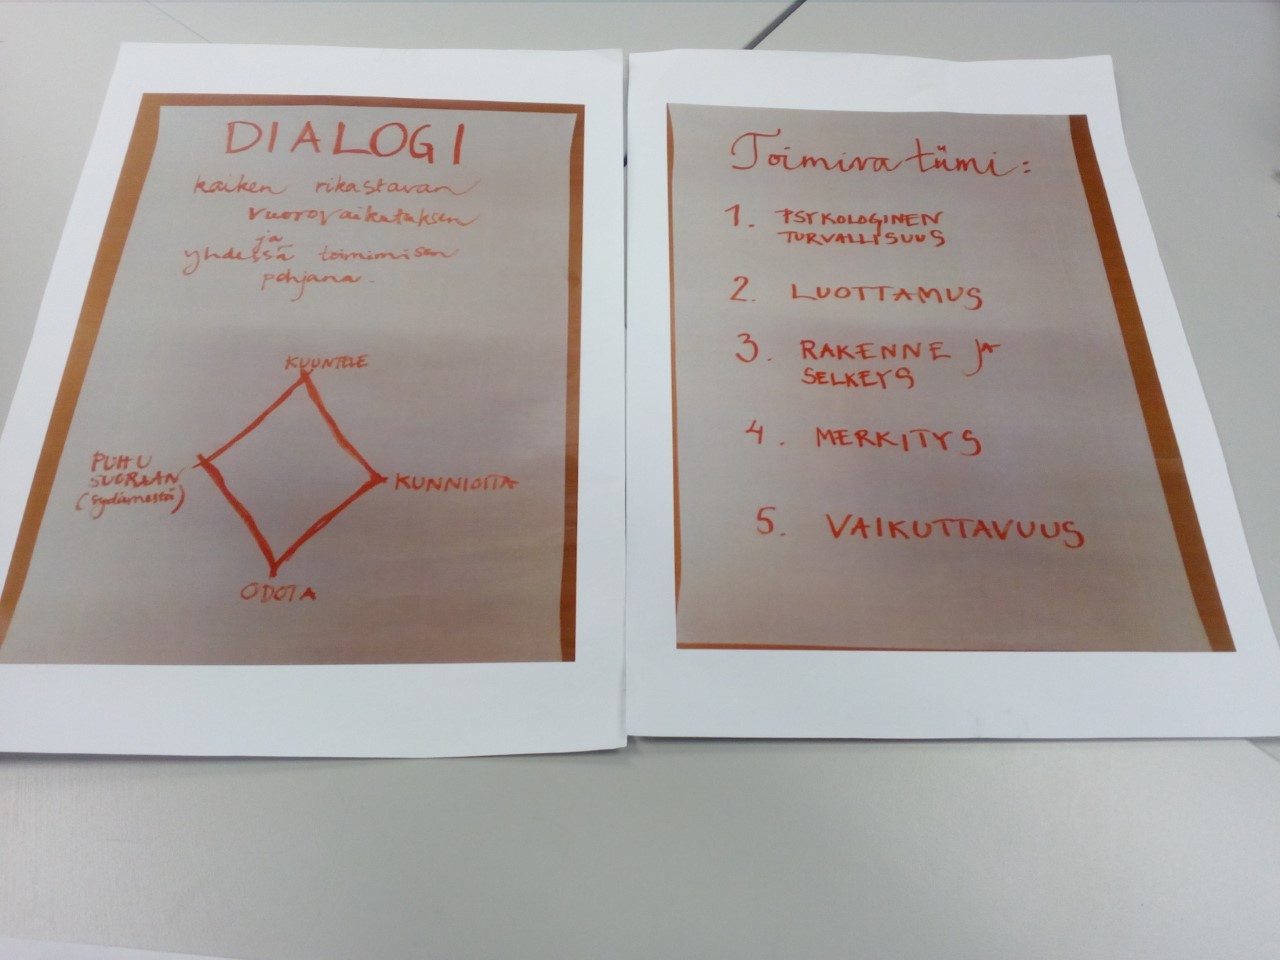 DIALOGI
kaiken rikastavan
vuorovaikutuksen
ja
yhdessä toimimisen
pohjana.
KUUNTELE
PUHU
SUORAAN
(sydämestä)
KUNNIOITA
ODOTA
Toimiva tiimi:
1. PSYKOLOGINEN
TURVALLISUUS
2. LUOTTAMUS
3. RAKENNE JA
SELKEYS
4. MERKITYS
5. VAIKUTTAVUUS